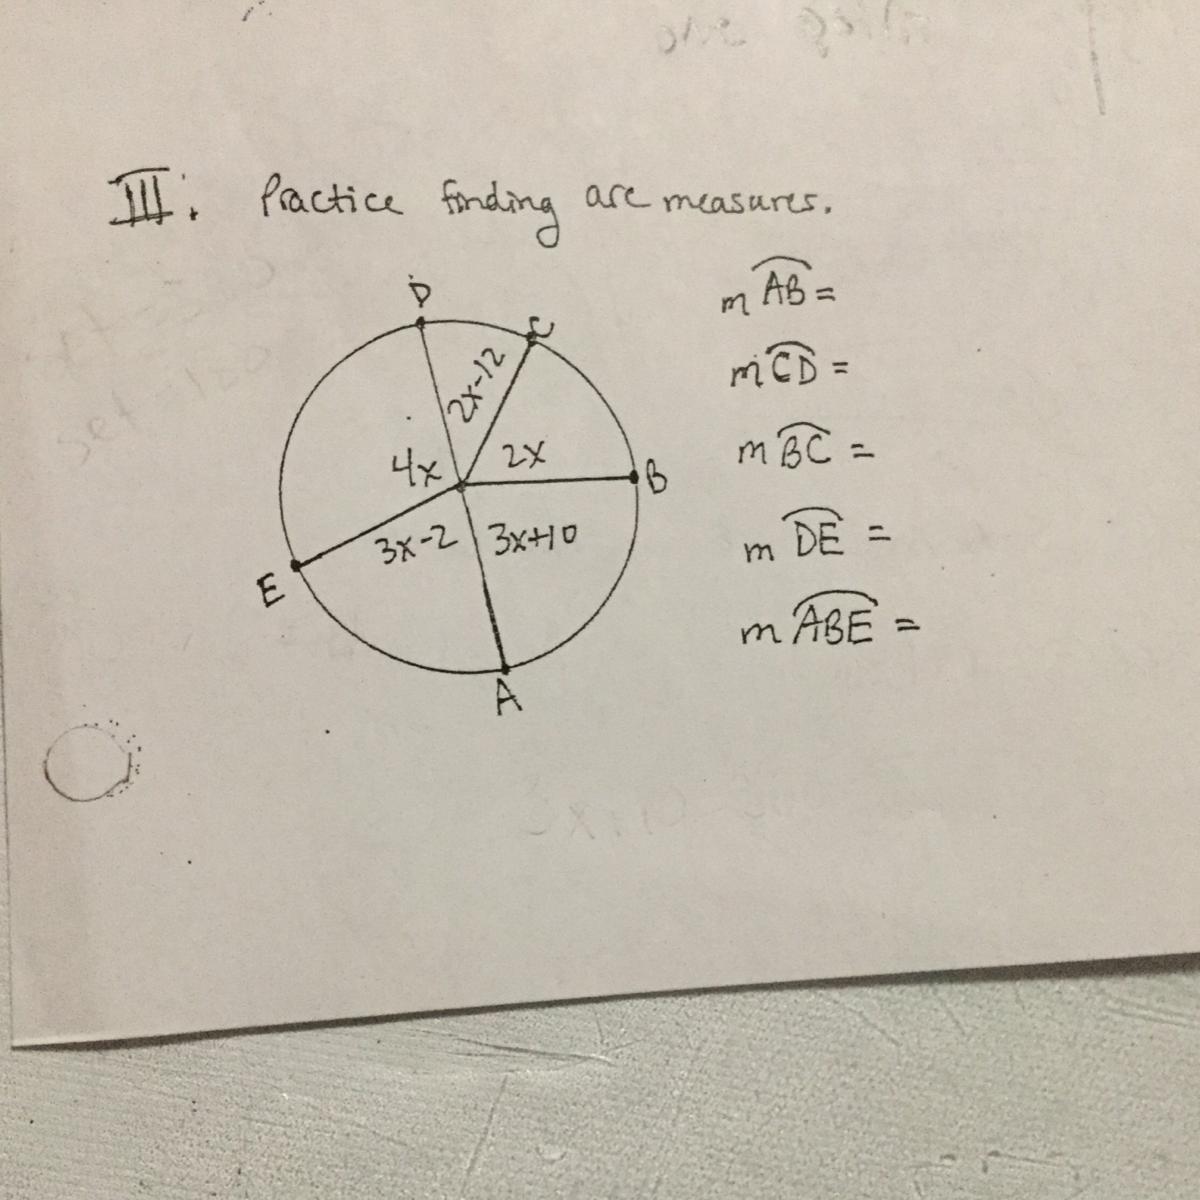 III. Practice finding arc measures.
D
C
2x-12
4x
2x
B
3x-2
3x+10
E
A
m AB =
m CD =
m BC =
m DE =
m ABE =